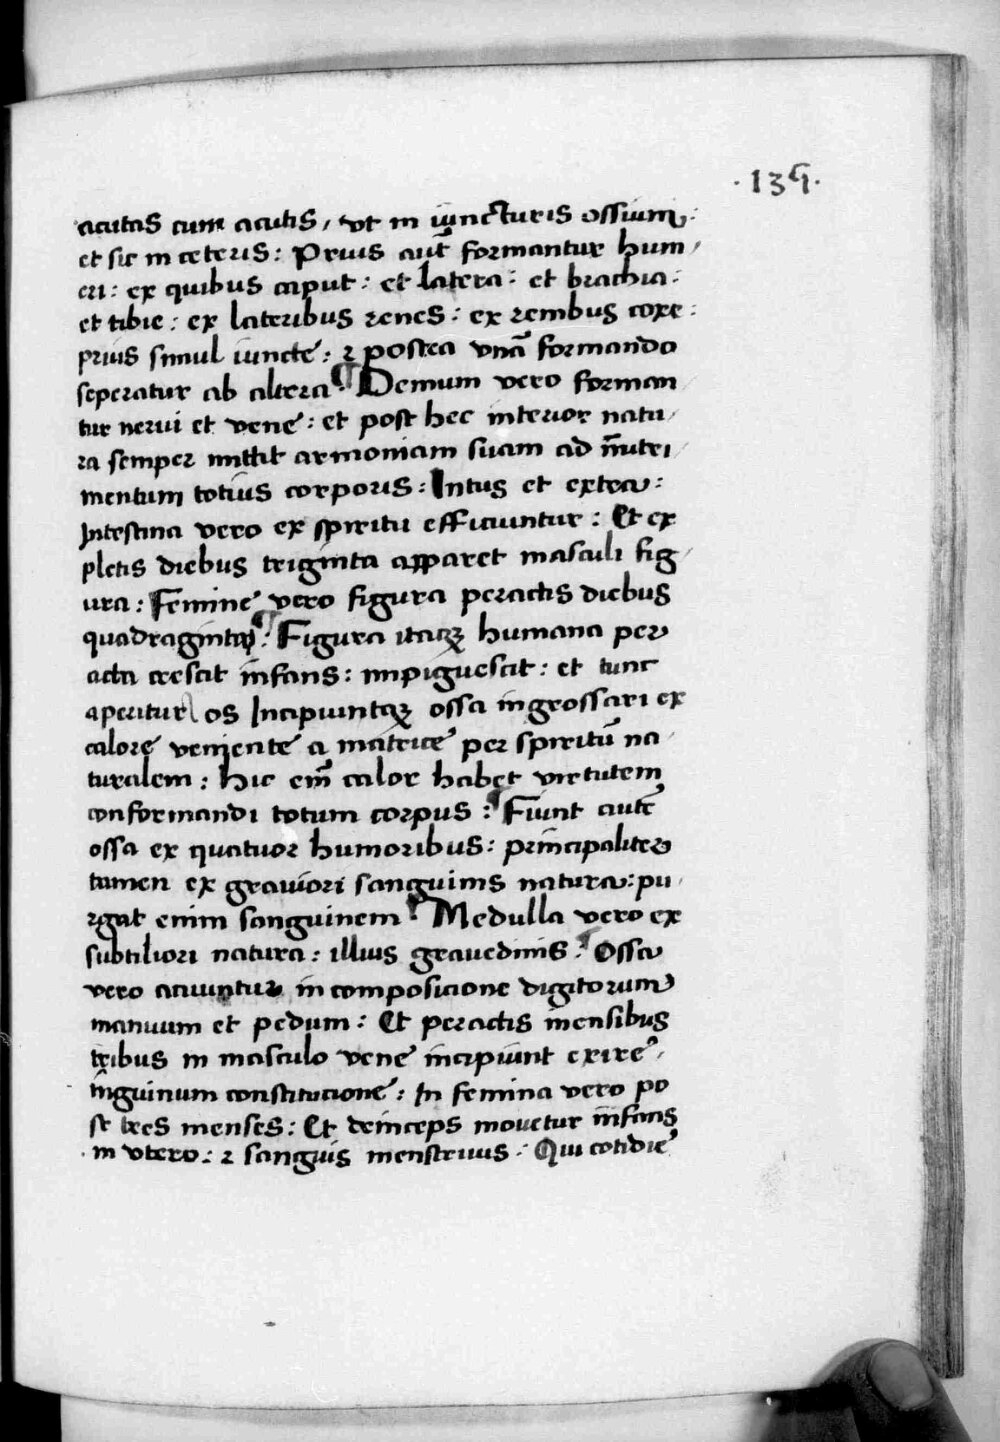 ·139·
acutas cum acutis, vt in iuncturis ossium:
et sic in ceteris: Prius aut̄ formantur hum,
eri: ex quibus caput: et latera: et brachia:
et tibie: ex lateribus renes: ex renibus coxe:
prius simul iuncte: ⁊ postea vnā formando
seperatur ab altera: ¶ Demum vero forman,
tur nerui et vene: et post hec interior natu,
ra semper mittit armoniam suam ad n̄utri,
mentum totius corporis: Intus et extra:
Intestina vero ex spiritu efficiuntur: Et ex
pletis diebus triginta apparet masculi fig,
ura: Femine vero figura peractis diebus
quadraginta: ¶ Figura itaqꝫ humana per
acta crescit infans: inpiguescit: et tunc
aperitur os Incipiuntqꝫ ossa ingrossari ex
calore veniente a matrice per spiritū na,
turalem: hic em̄ calor habet virtutem
conformandi totum corpus: ¶ Fiunt aute᷈
ossa ex quatuor humoribus: principaliter
tamen ex grauiori sanguinis natura: pu,
rgat enim sanguinem: ¶ Medulla vero ex
subtiliori natura: illius grauedinis: ¶ Ossa
vero acuuntur in composicione digitorum
manuum et pedum: Et peractis mensibus
tribus in masculo vene incipiunt exire,
inguinum constitucione: In femina vero po
st tres menses: Et deinceps mouetur infans
in vtero: ⁊ sanguis menstruus: Qui cotidie